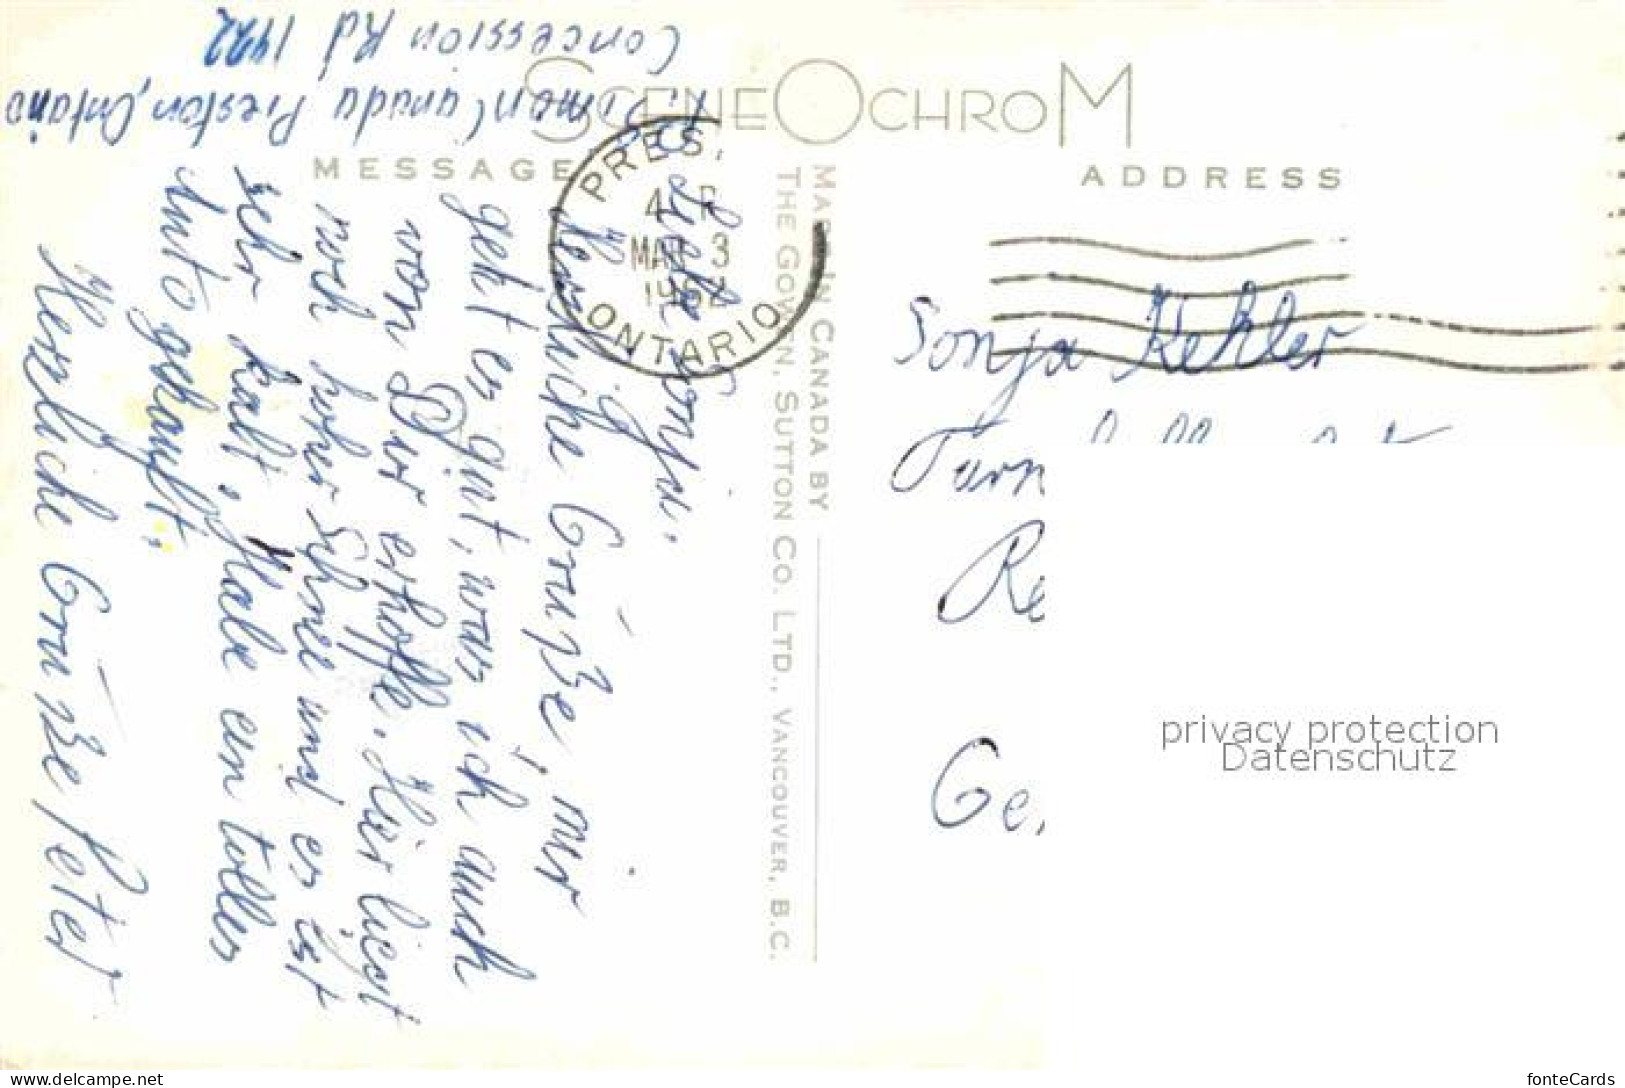 Concession Rd 1422
Canada Preston, Ontario
SCENEOCHROM
MESSAGE
ADDRESS
MADE IN CANADA BY
THE GOWEN, SUTTON CO. LTD., VANCOUVER, B.C.
PRES
4 P
MAR 3
196
ONTARIO
Liebe Sonja.
Herzliche Grüße, mir
geht es gut, was ich auch
von Dir erhoffe. Hier liegt
noch hoher Schnee und es ist
sehr kalt, Habe ein tolles
Auto gekauft.
Herzliche Grüße Peter
Sonja Kehler
Turn
Re
Ge
privacy protection
Datenschutz
www.delcampe.net
fonteCards